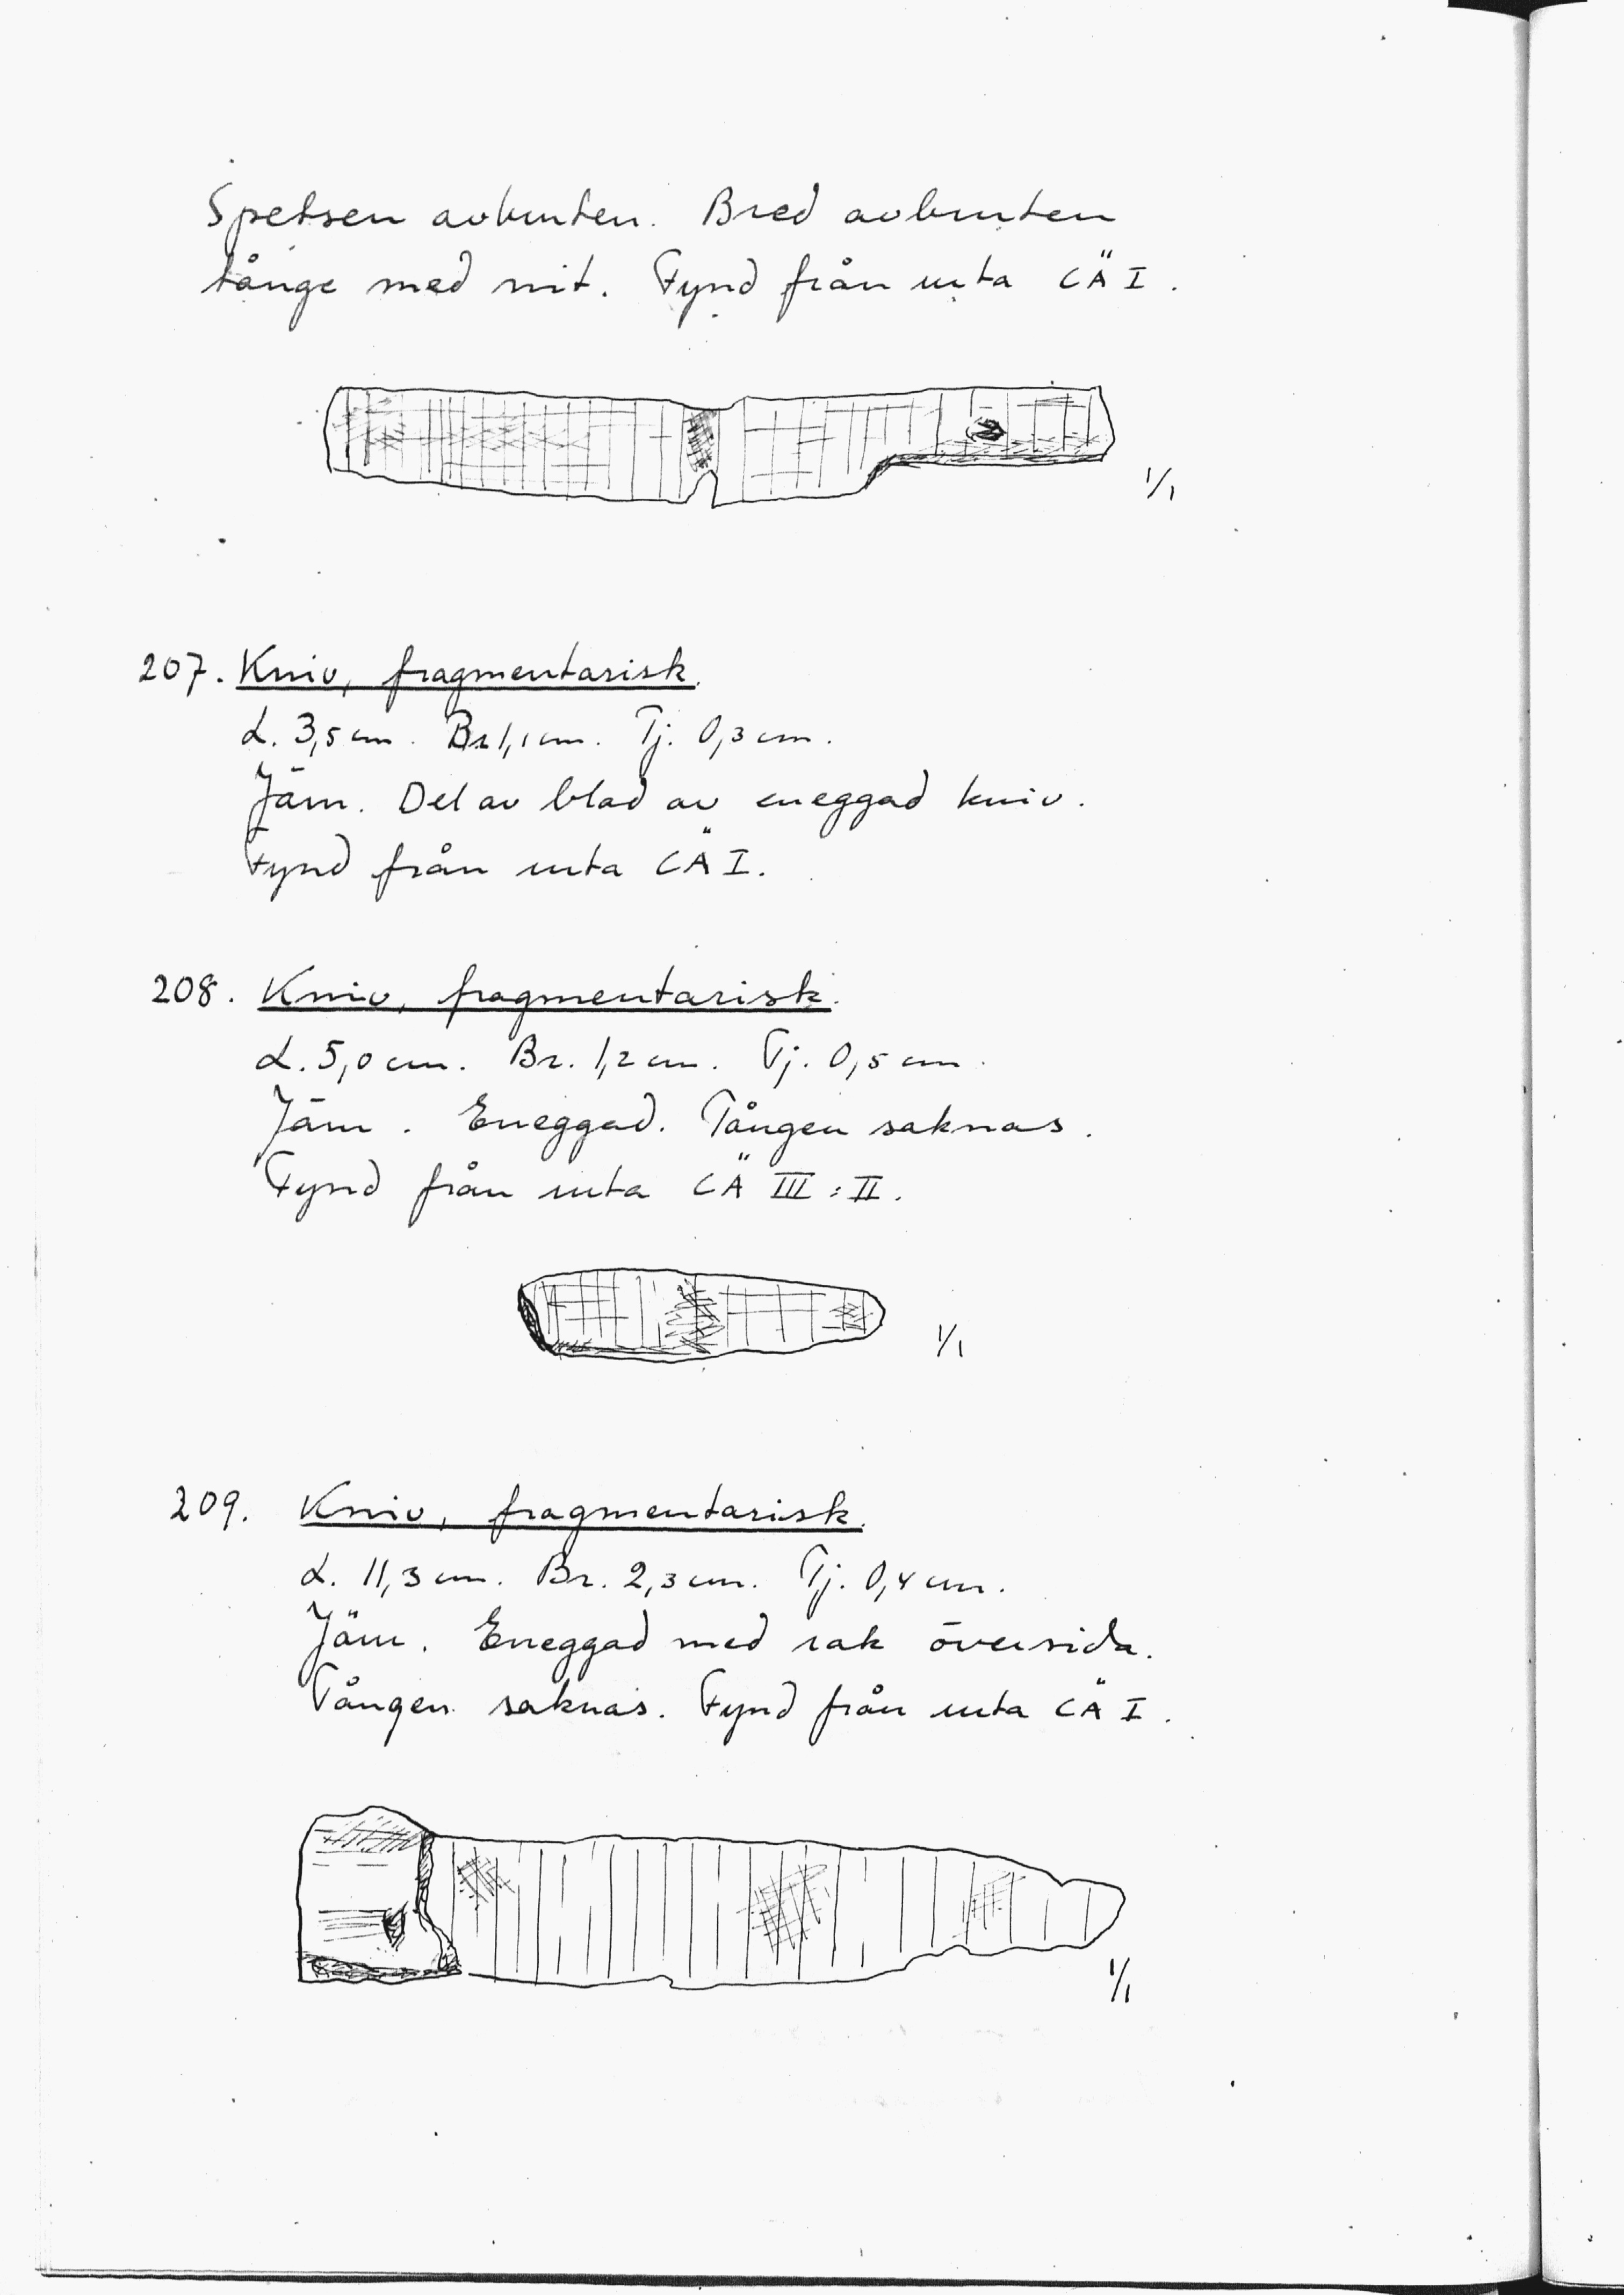 Spetsen avbruten. Bred avbruten
tånge med nit. Fynd från ruta CÄ I.
1/1
207. Kniv, fragmentarisk.
L. 3,5 cm. Br 1,1 cm. Tj. 0,3 cm.
Järn. Del av blad av eneggad kniv.
Fynd från ruta CÄ I.
208. Kniv, fragmentarisk.
L. 5,0 cm. Br. 1,2 cm. Tj. 0,5 cm.
Järn. Eneggad. Tången saknas.
Fynd från ruta CÄ III:II.
1/1
209. Kniv, fragmentarisk.
L. 11,3 cm. Br. 2,3 cm. Tj. 0,4 cm.
Järn. Eneggad med rak översida.
Tången saknas. Fynd från ruta CÄ I.
1/1